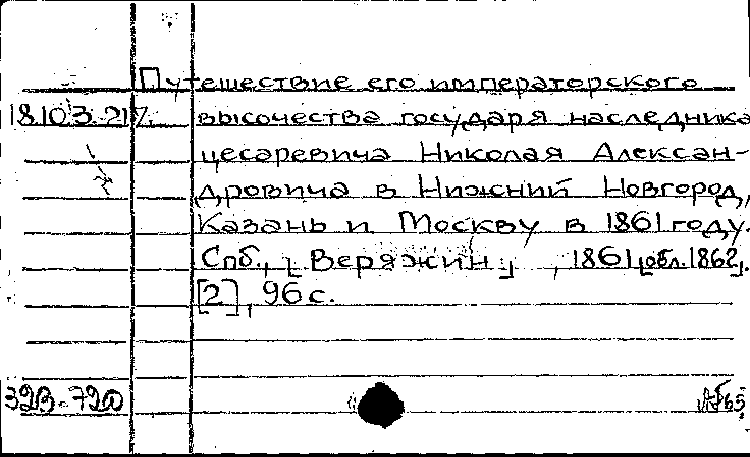 Путешествие его императорского
18.103.2.17. высочества государя наследника
цесаревича Николая Алексан-
дровича в Нижний Новгород,
Казань и Москву в 1861 году.
Спб., [Веряжин], 1861 [обл. 1862].
[2], 96 с.